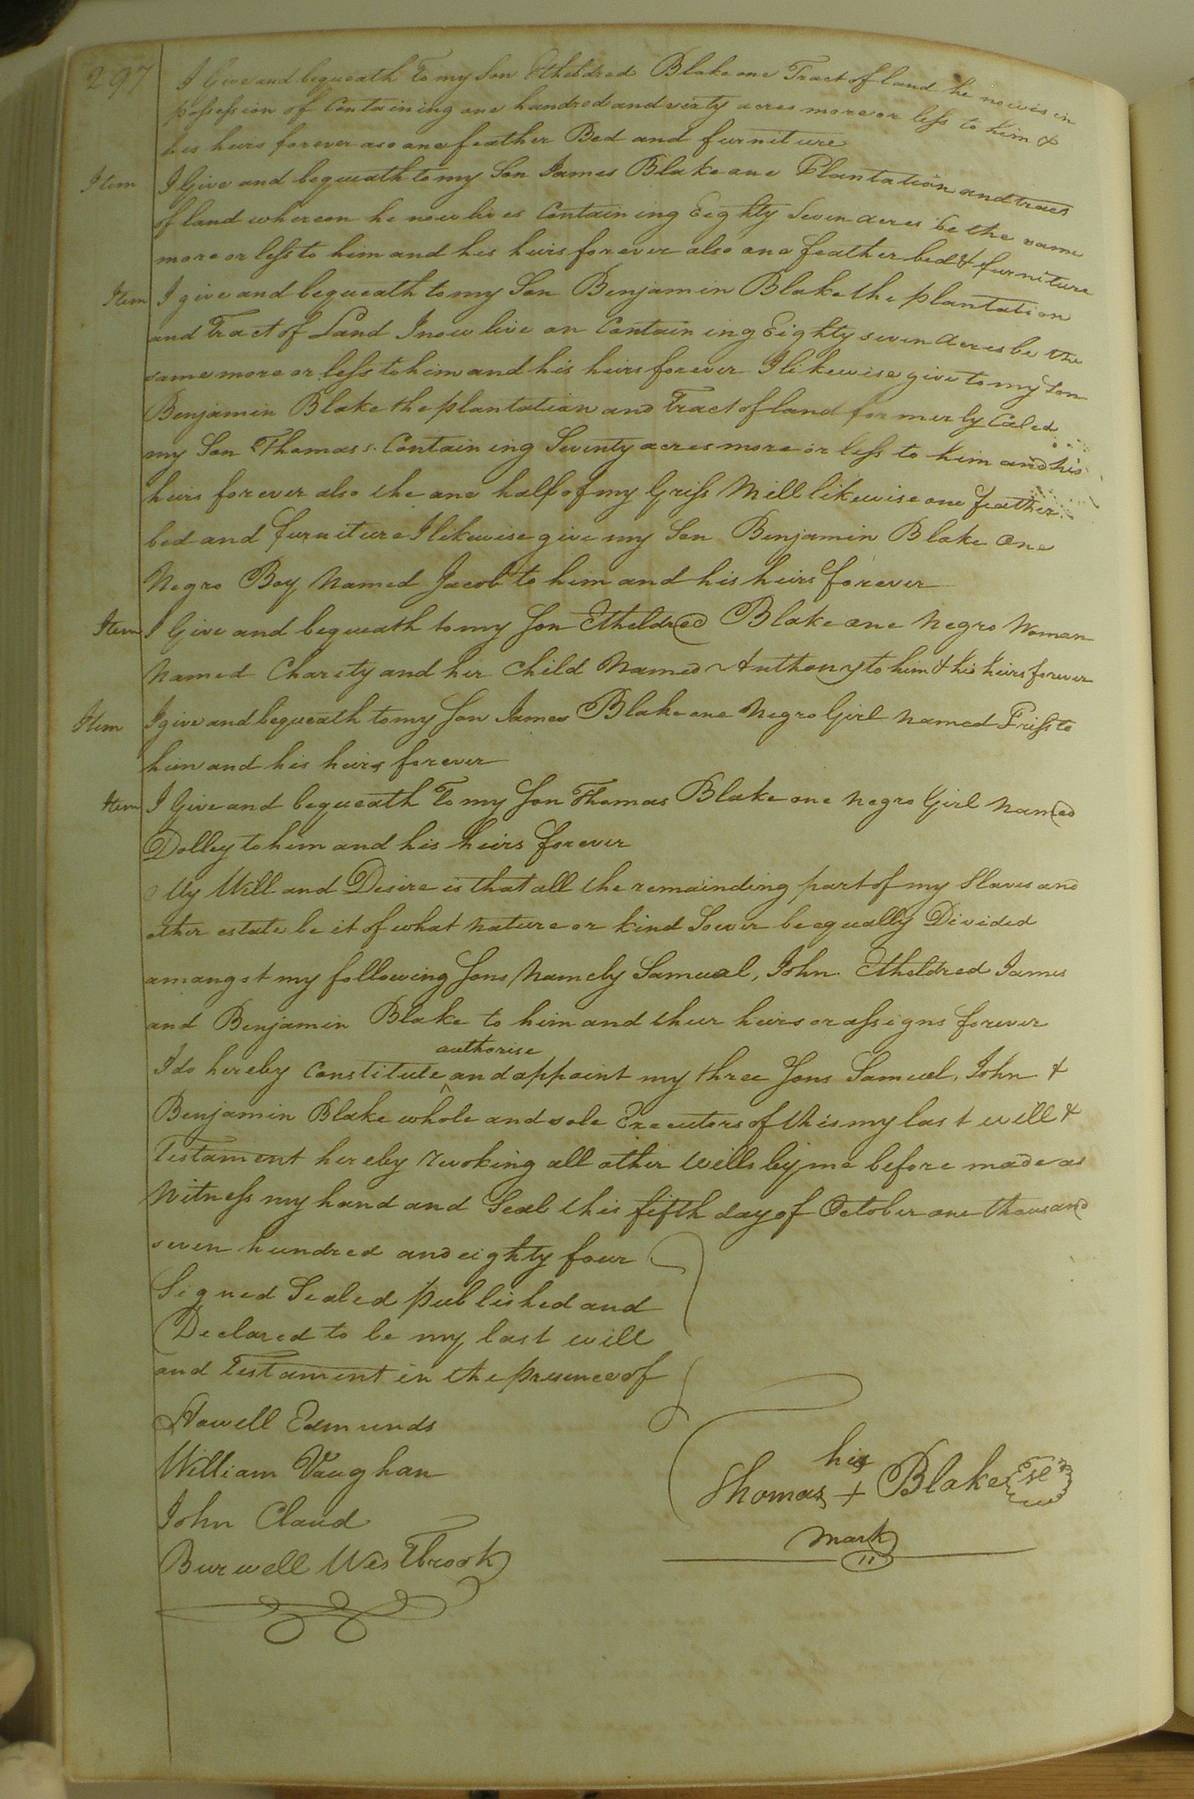 297
I Give and bequeath to my Son Etheldred Blake one Tract of land he now is in
possession of Containing one hundred and sixty acres more or less to him &
his heirs forever also one feather Bed and furniture
Item I Give and bequeath to my Son James Blake one Plantation and tract
of land whereon he now lives Containing Eighty Seven acres be the same
more or less to him and his heirs forever also one feather bed & furniture
Item I give and bequeath to my Son Benjamin Blake the plantation
and Tract of Land I now live on Containing Eighty seven Acres be the
same more or less to him and his heirs forever I likewise give to my Son
Benjamin Blake the plantation and Tract of land formerly Caled
my Son Thomas's Containing Seventy acres more or less to him and his
heirs forever also the one half of my Griss Mill likewise one feather
bed and furniture I likewise give my Son Benjamin Blake One
Negro Boy Named Jacob to him and his heirs forever
Item I Give and bequeath to my Son Etheldred Blake one Negro Woman
Named Charity and her Child Named Anthony to him & his heirs forever
Item I give and bequeath to my Son James Blake one Negro Girl named Priss to
him and his heirs forever
Item I Give and bequeath To my Son Thomas Blake one Negro Girl Named
Dolley to him and his heirs forever
My Will and Desire is that all the remainding part of my Slaves and
other estate be it of what nature or kind Sower be equally Divided
amongst my following Sons Namely Samuel, John Etheldred James
and Benjamin Blake to him and their heirs or assigns forever
authorise
I do hereby Constitute ^ and appoint my three Sons Samuel, John &
Benjamin Blake whole and sole Executors of this my last will &
Testament hereby revoking all other Wills by me before made as
Witness my hand and Seal this fifth day of October one thousand
seven hundred and eighty four
Signed Sealed published and
Declared to be my last will
and Testament in the presence of
Howell Edmunds
William Vaughan
John Claud
Burwell Westbrook
his
Thomas + Blake Sel
mark